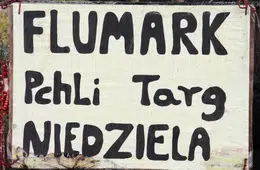 FLUMARK
Pchli Targ
NIEDZIELA